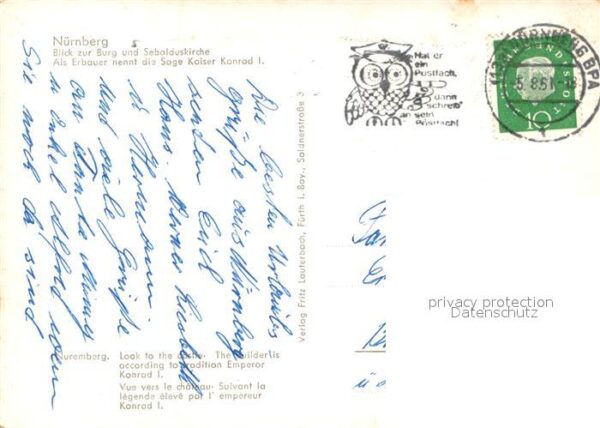 Nürnberg
Blick zur Burg und Sebalduskirche
Als Erbauer nennt die Sage Kaiser Konrad I.
Hat er
ein
Postfach,
dann
"schreib"
an sein
Postfach!
NÜRNBERG BPA
-5.8.61
DEUTSCHE BUNDESPOST
10
Die besten Urlaubs
grüße aus Nürnberg
senden Euch
Hans Werner
u. Hermann
und viele Grüße
an Tante
u Onkel Alfred wenn
Sie noch da sind
Verlag Fritz Lauterbach, Fürth i. Bay., Soldnerstraße 3
privacy protection
Datenschutz
Nuremberg. Look to the castle. The builder is
according to tradition Emperor
Konrad I.
Vue vers le château. Suivant la
légende élevé par l' empereur
Konrad I.